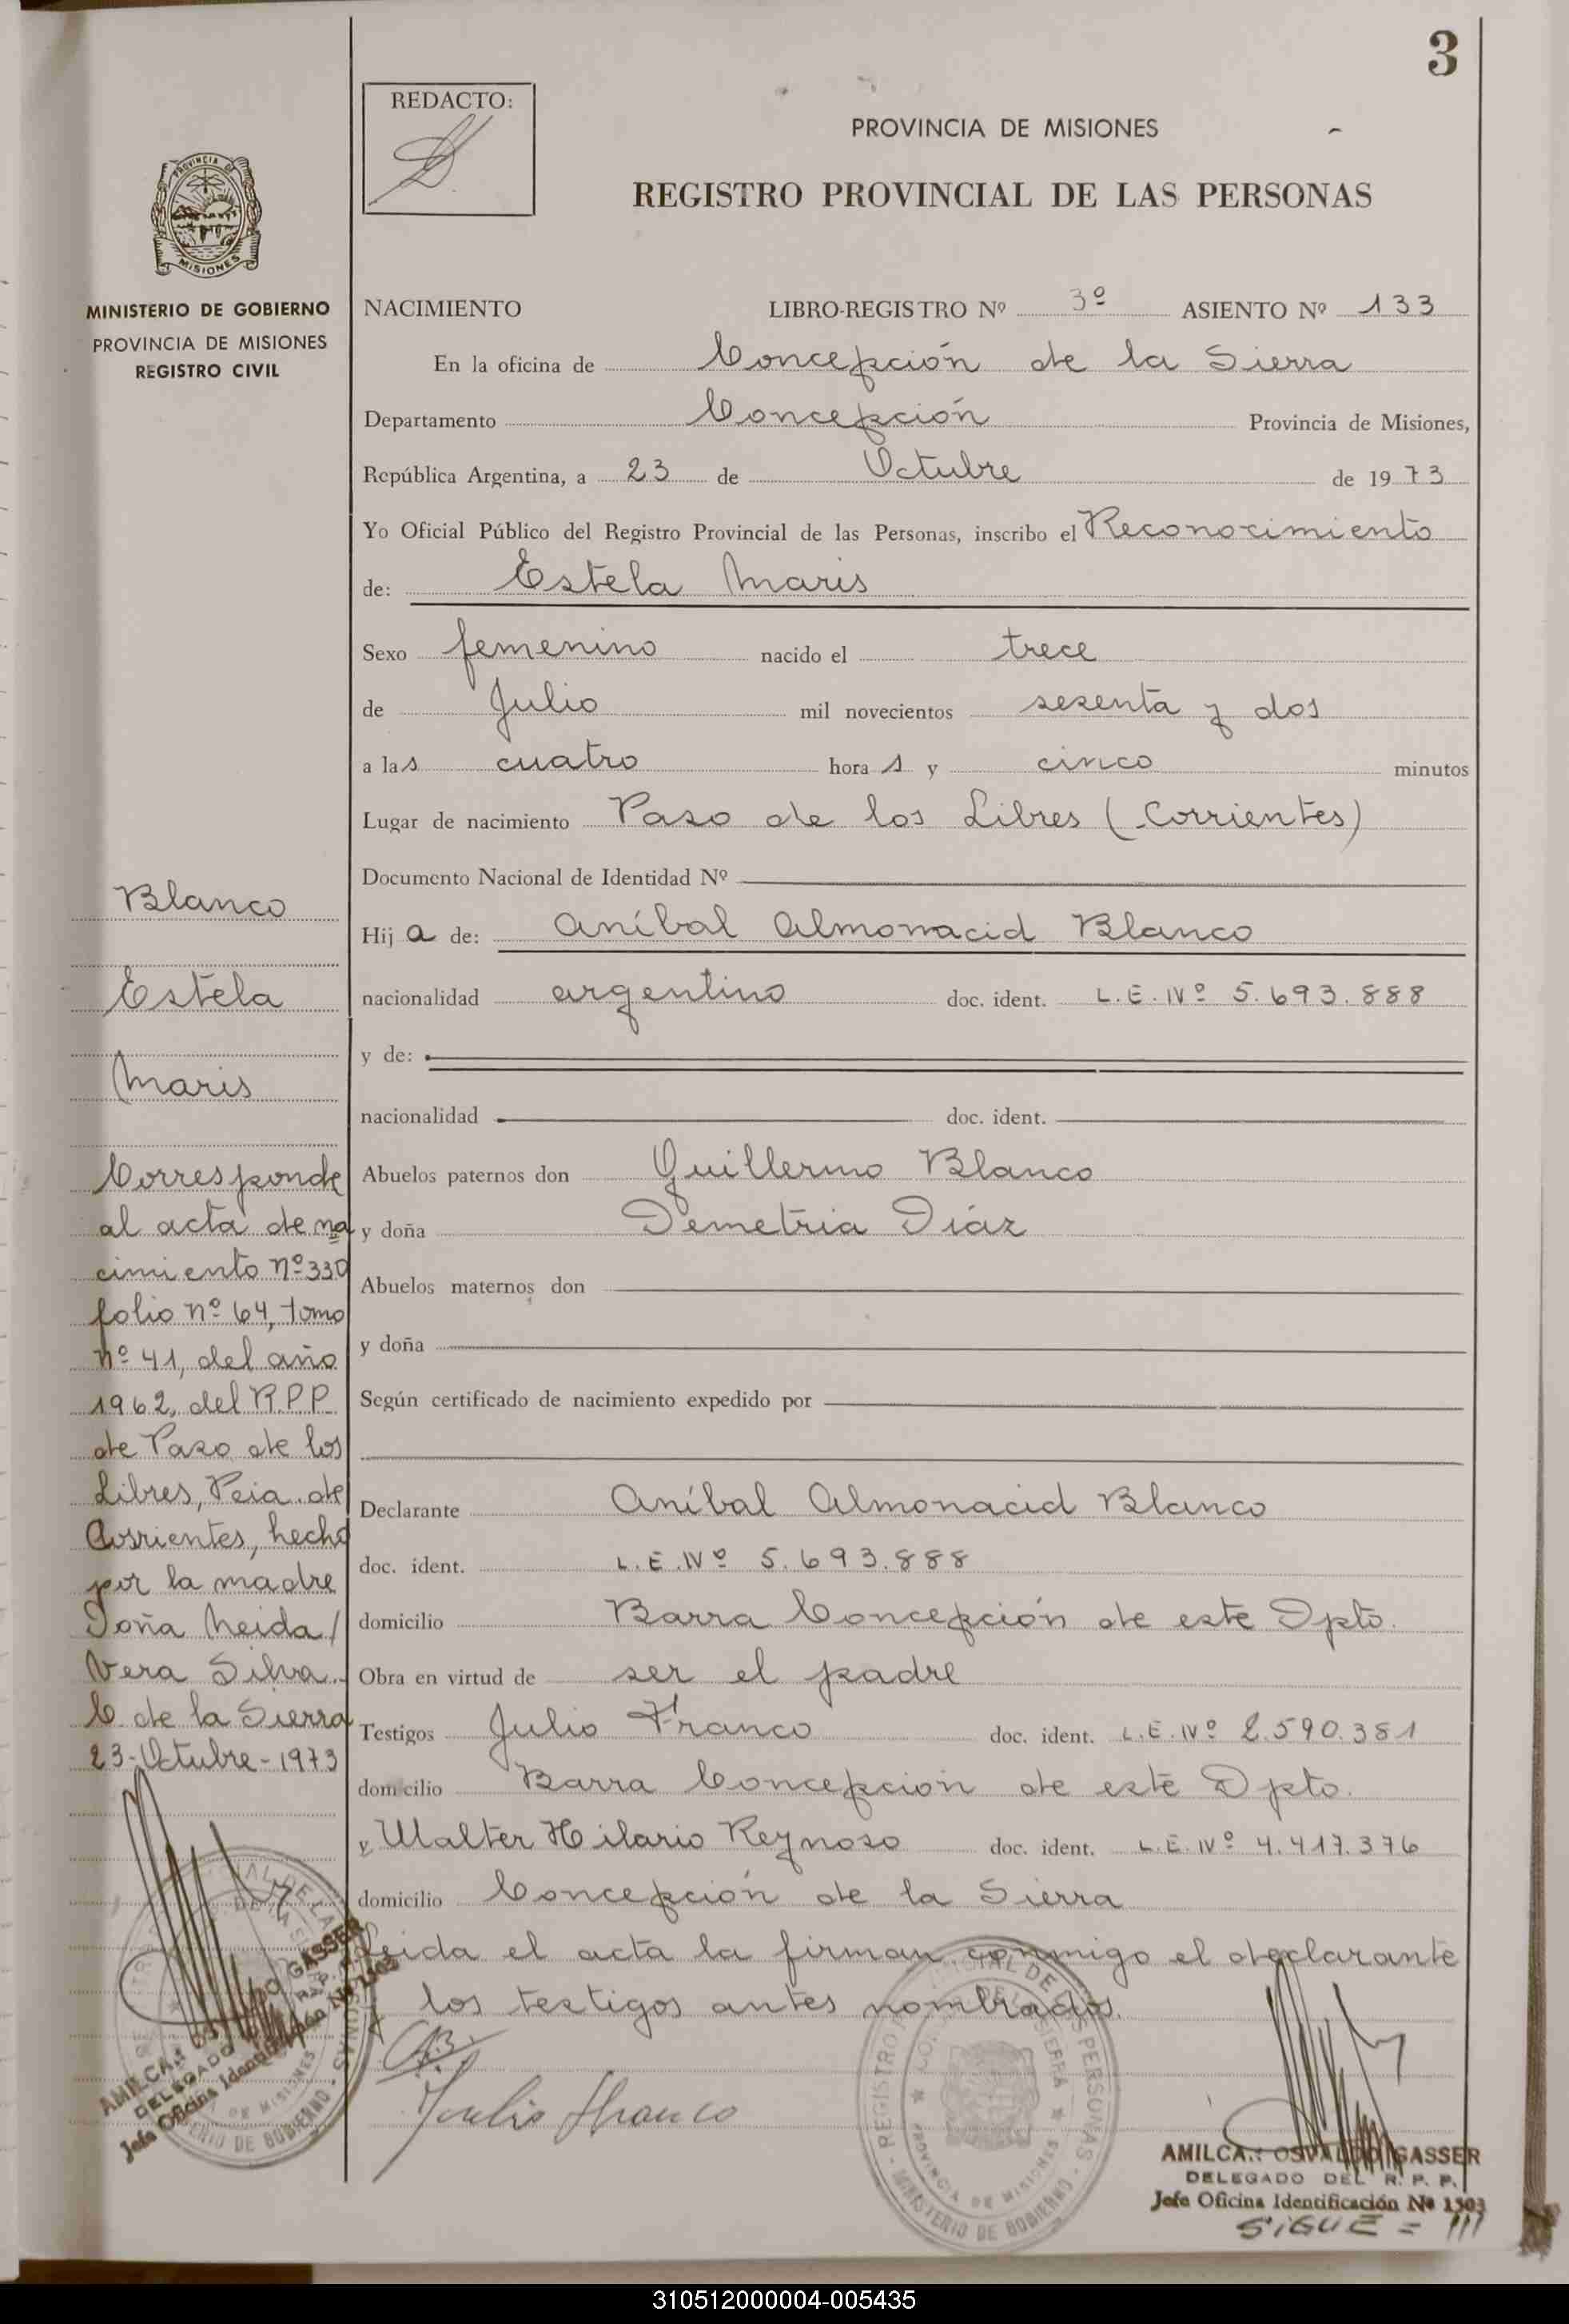 3
REDACTO:
PROVINCIA DE MISIONES
REGISTRO PROVINCIAL DE LAS PERSONAS
PROVINCIA DE
MISIONES
MINISTERIO DE GOBIERNO
PROVINCIA DE MISIONES
REGISTRO CIVIL
NACIMIENTO LIBRO-REGISTRO Nº 3º ASIENTO Nº 133
En la oficina de Concepción de la Sierra
Departamento Concepción Provincia de Misiones,
República Argentina, a 23 de Octubre de 1973
Yo Oficial Público del Registro Provincial de las Personas, inscribo el Reconocimiento
de: Estela Maris
Sexo femenino nacido el trece
de Julio mil novecientos sesenta y dos
a las cuatro hora s y cinco minutos
Lugar de nacimiento Paso de los Libres (Corrientes)
Documento Nacional de Identidad Nº
Hij a de: Aníbal Almonacid Blanco
nacionalidad argentino doc. ident. L.E. Nº 5.693.888
y de:
nacionalidad doc. ident.
Abuelos paternos don Guillermo Blanco
y doña Demetria Diáz
Abuelos maternos don
y doña
Según certificado de nacimiento expedido por
Declarante Aníbal Almonacid Blanco
doc. ident. L.E.Nº 5.693.888
domicilio Barra Concepción de este Dpto.
Obra en virtud de ser el padre
Testigos Julio Franco doc. ident. L.E.Nº 2.590.381
domicilio Barra Concepción de este Dpto.
y Walter Hilario Reynoso doc. ident. L.E.Nº 4.417.376
domicilio Concepción de la Sierra
Leida el acta la firman conmigo el declarante
y los testigos antes nombrados.
Blanco
Estela
Maris
Corresponde
al acta de na
cimiento nº 330
folio nº 64, tomo
nº 41, del año
1962, del R.P.P.
de Paso de los
Libres, Pcia. de
Corrientes, hecho
por la madre
Doña Neida /
Vera Silva.
C. de la Sierra
23-Octubre-1973
AMILCAR OSVALDO GASSER
DELEGADO DEL R. P. P.
Jefe Oficina Identificación Nº 1503
Julio Franco
REGISTRO PROVINCIAL DE LAS PERSONAS - MINISTERIO DE GOBIERNO
PROVINCIA DE MISIONES
AMILCAR OSVALDO GASSER
DELEGADO DEL R. P. P.
Jefe Oficina Identificación Nº 1503
SIGUE = ///
310512000004-005435